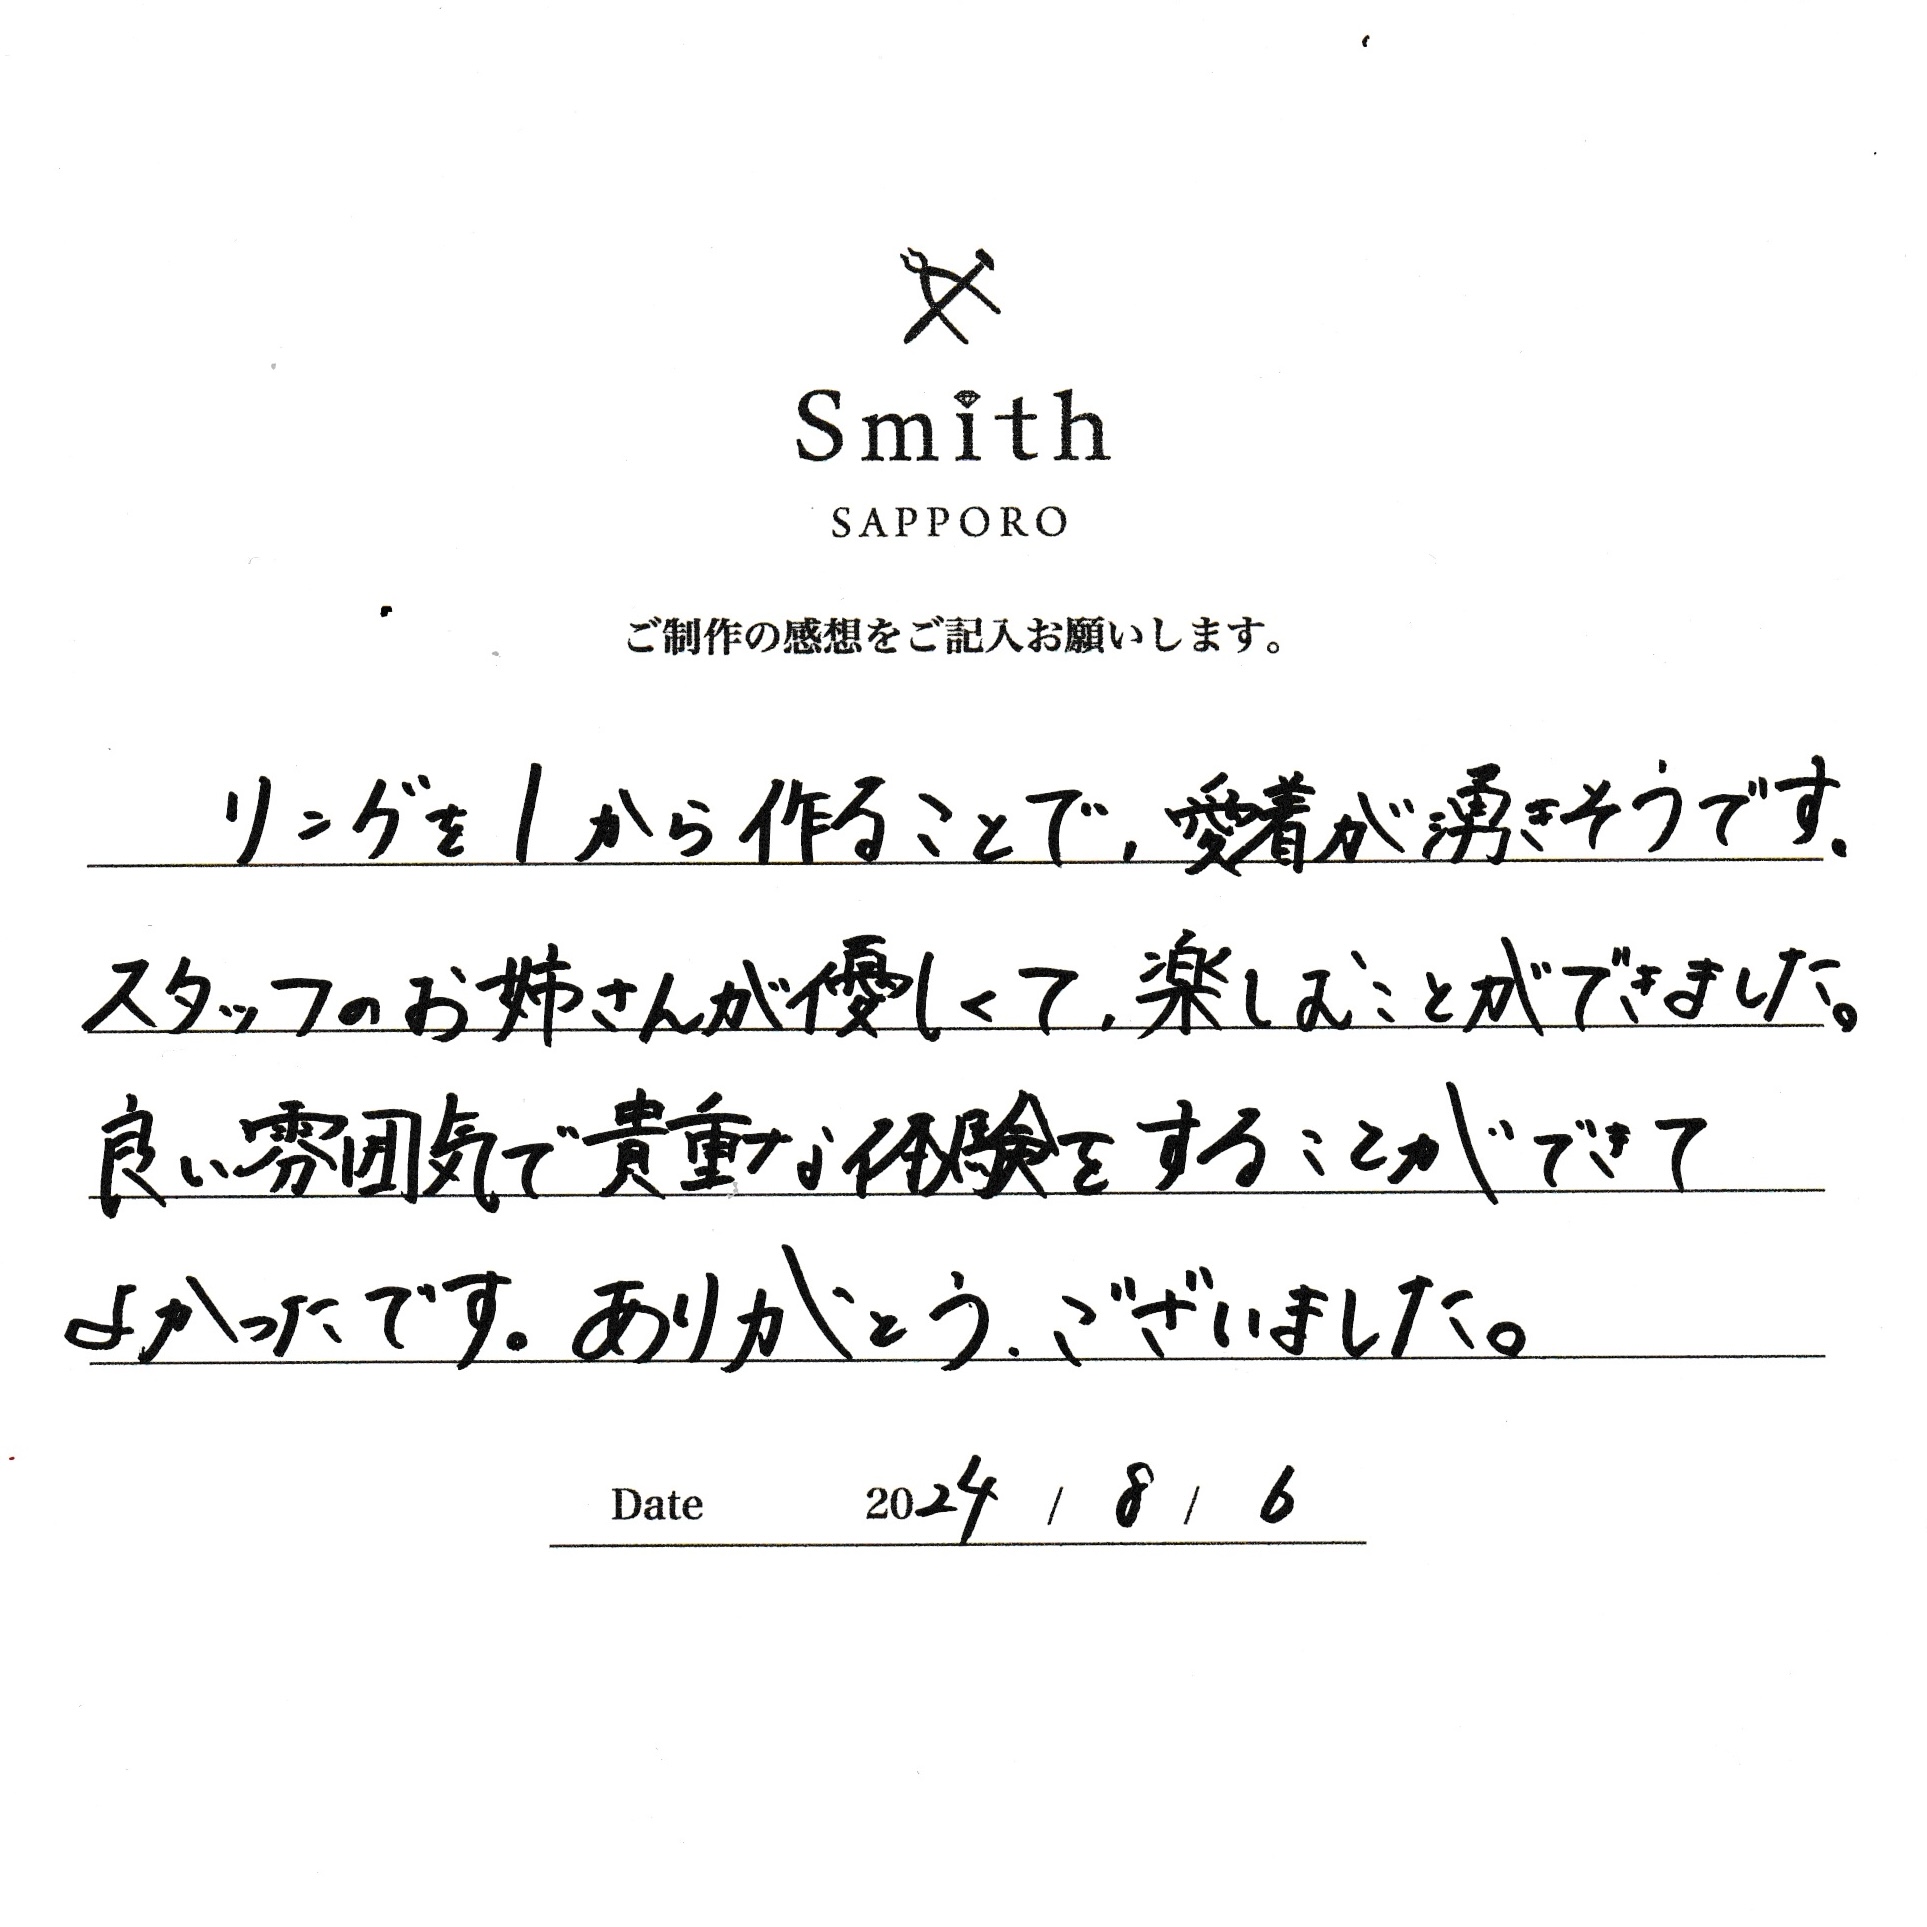 Smith
SAPPORO
ご制作の感想をご記入お願いします。
リングを1から作ることで,愛着が湧きそうです.
スタッフのお姉さんが優しくて,楽しむことができました。
良い雰囲気で貴重な体験をすることができて
よかったです。ありがとう.ございました。
Date 2024 / 8 / 6